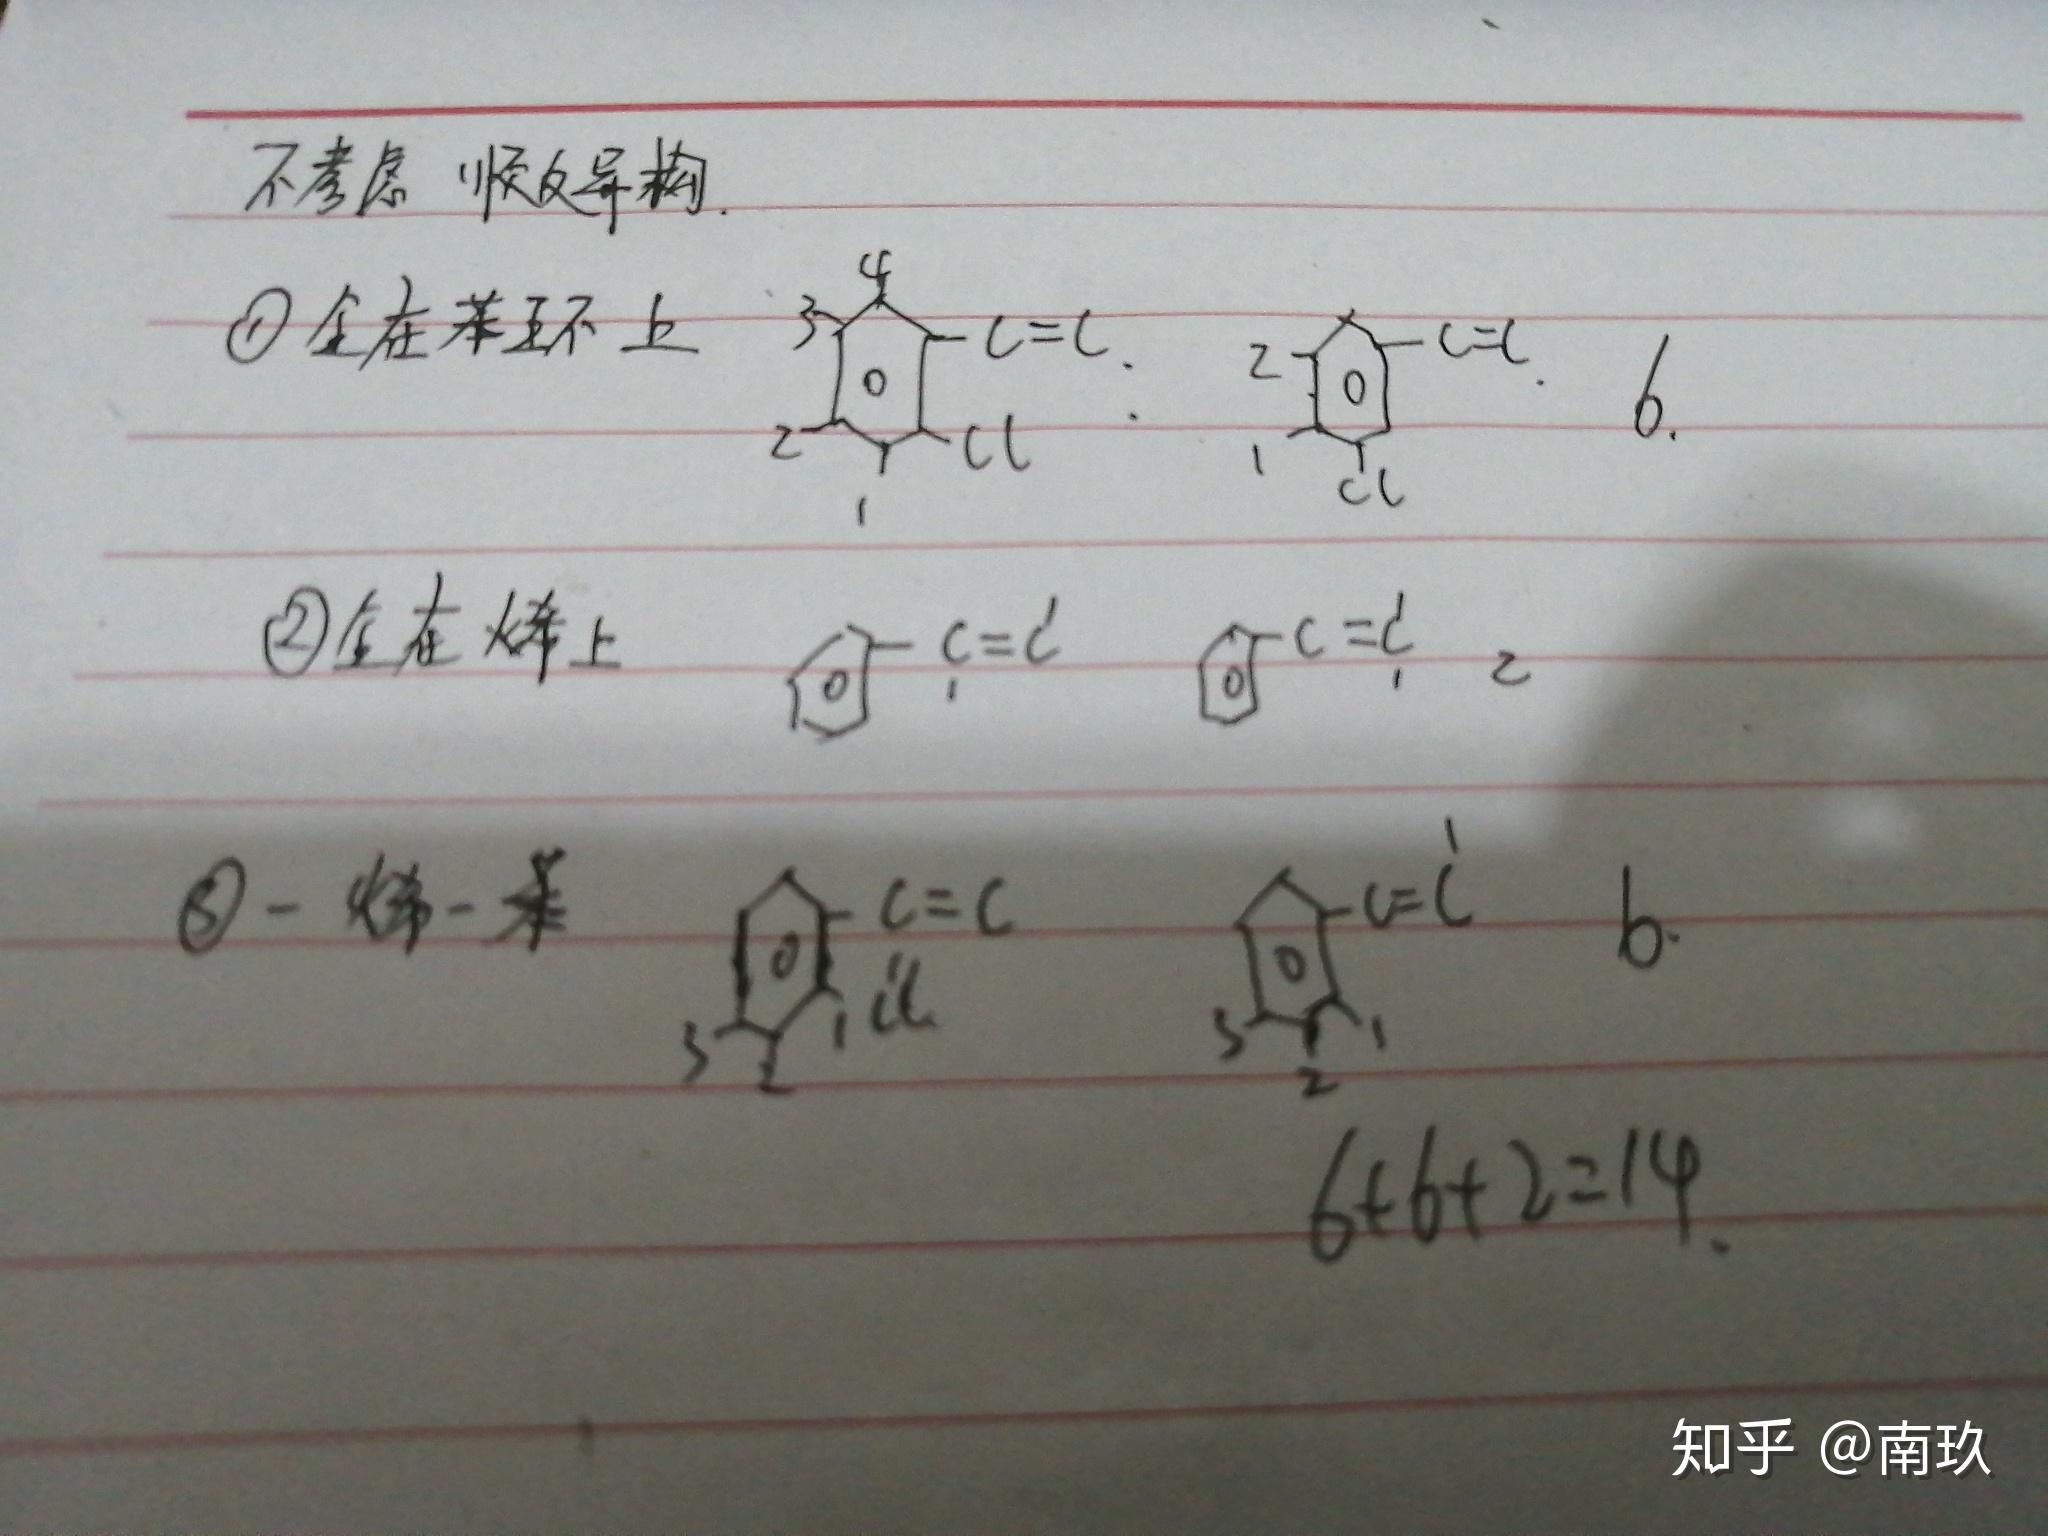 不考虑 顺反异构.
① 全在苯环上 4 3 C=C. 2 Cl 1 2 C=C. 1 Cl 6.
② 全在烯上 C=C C=C 2
③ 一烯一苯 C=C Cl 3 2 1 C=C 3 2 1 6.
6+6+2=14.
知乎 @南玖